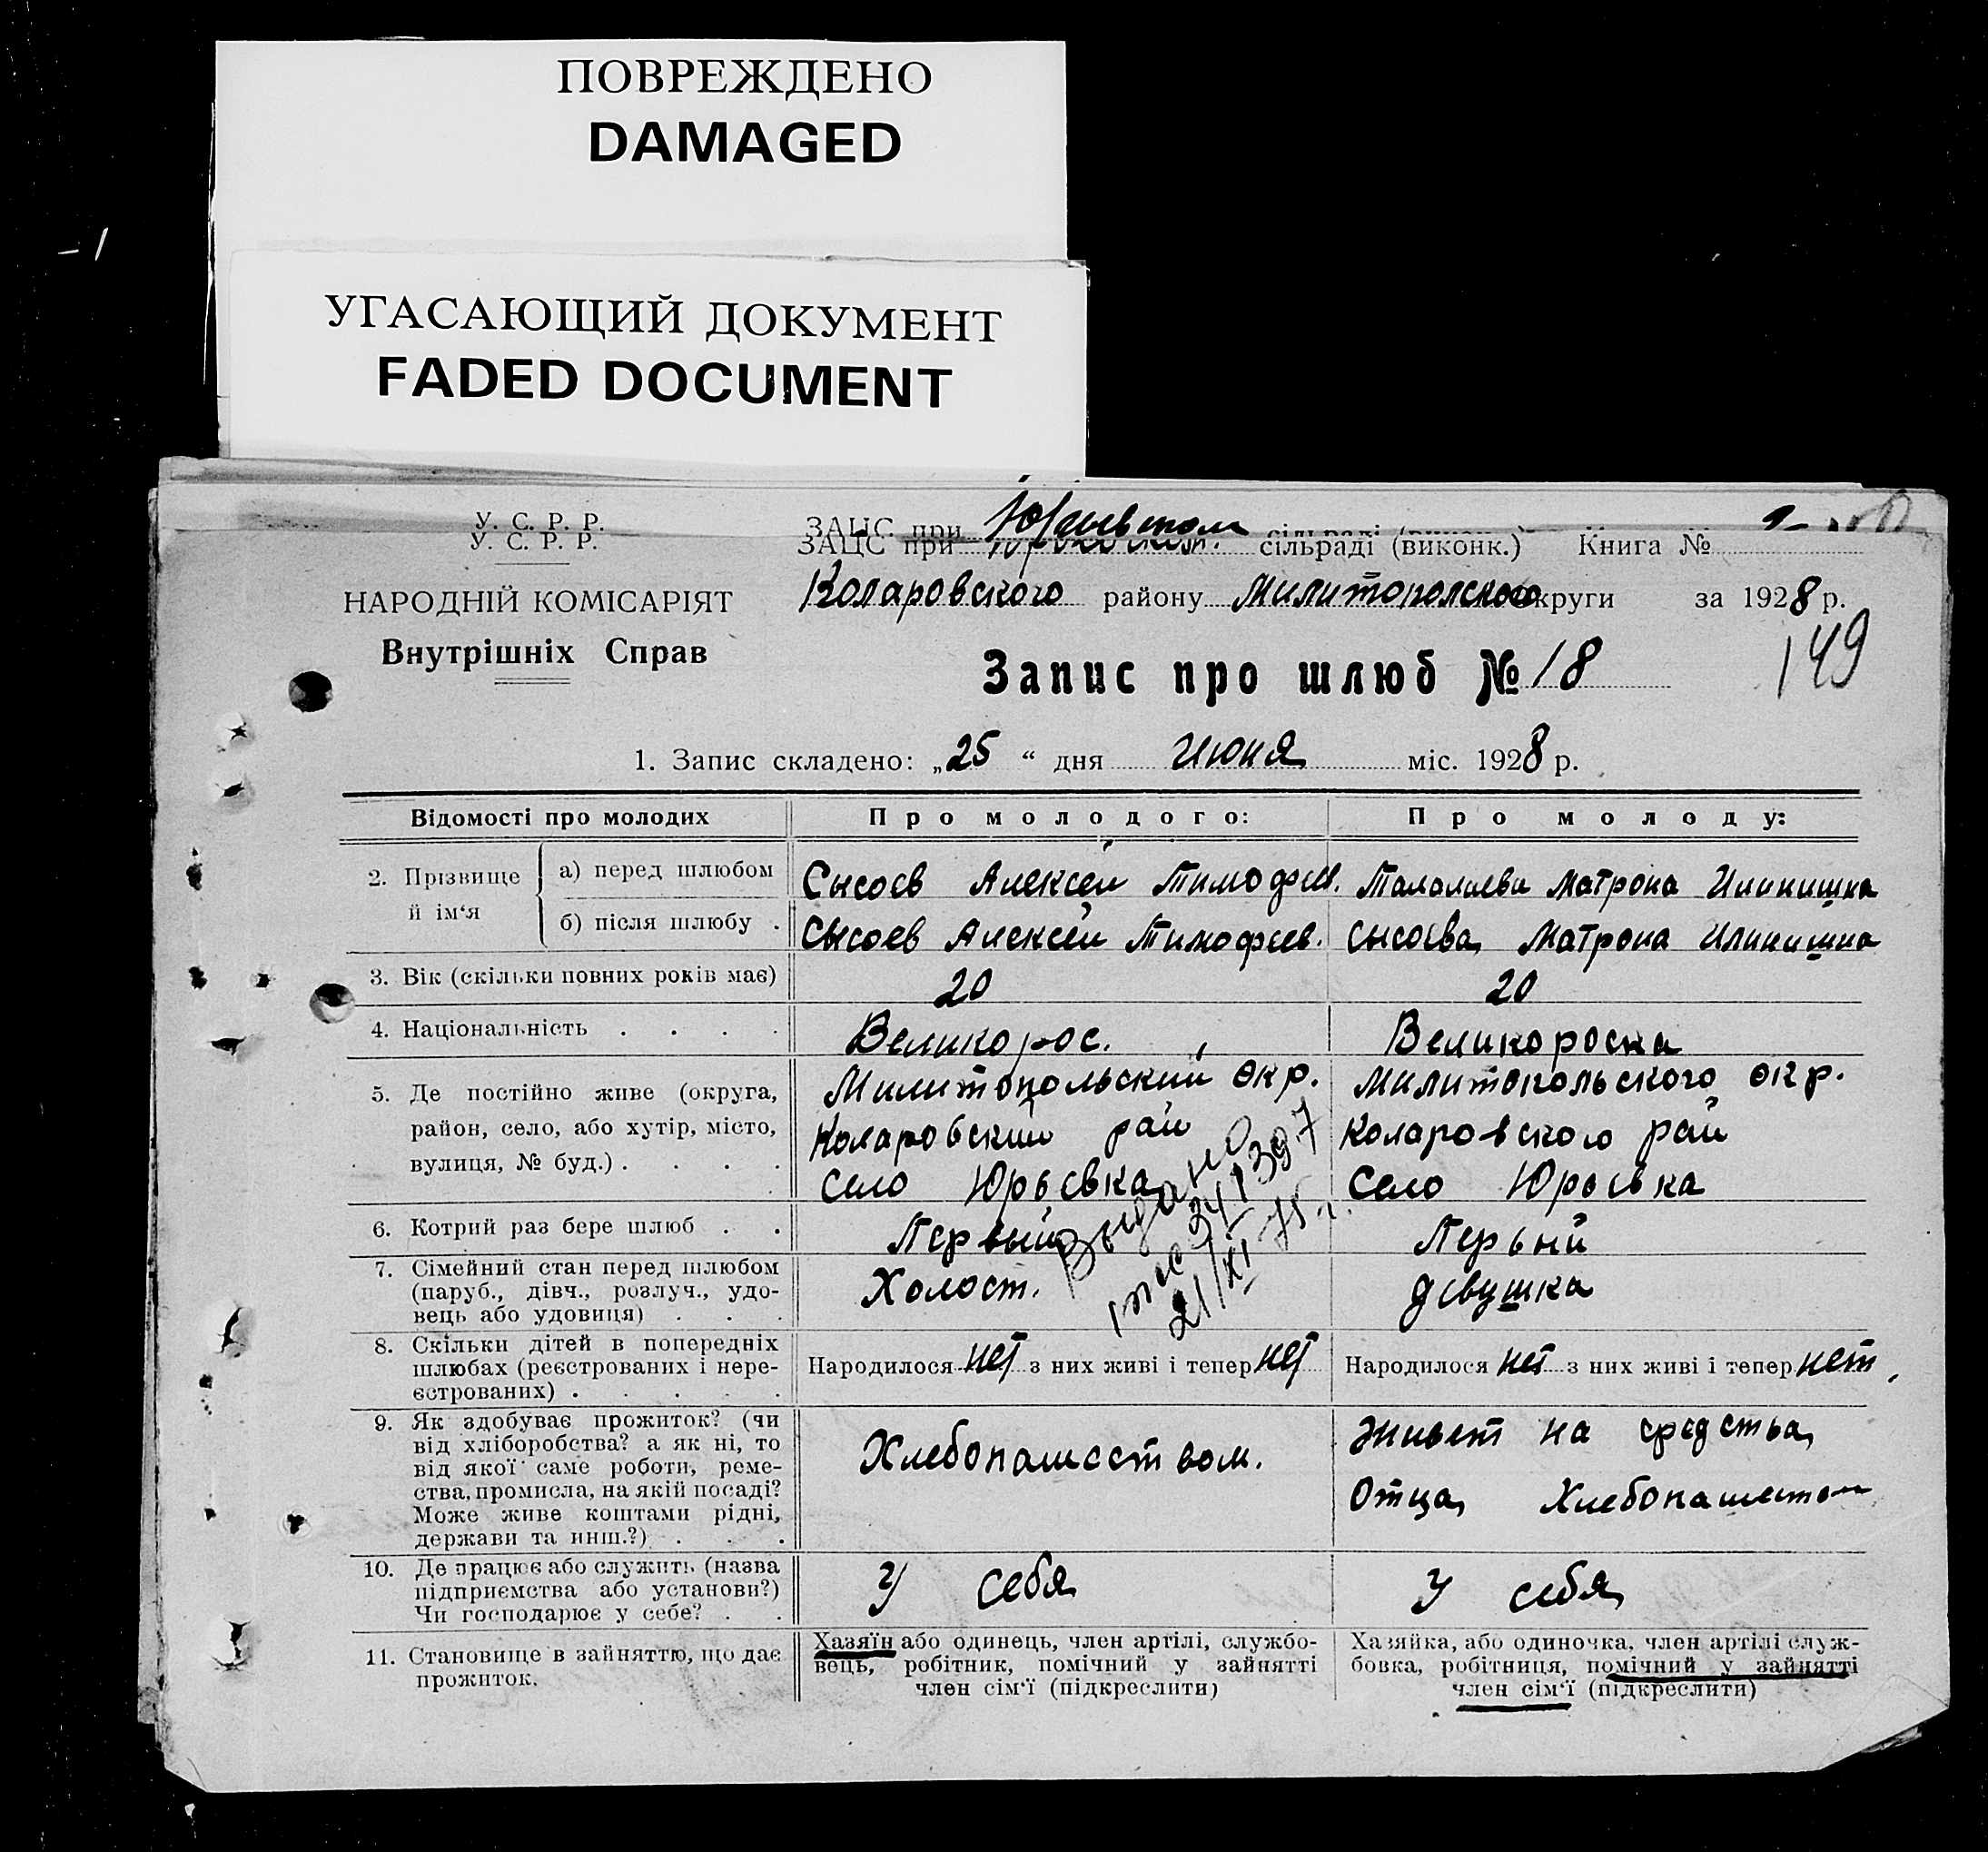 ПОВРЕЖДЕНО
DAMAGED
УГАСАЮЩИЙ ДОКУМЕНТ
FADED DOCUMENT
У. С. Р. Р.
У. С. Р. Р.
НАРОДНІЙ КОМІСАРІЯТ
Внутрішніх Справ
ЗАЦС при
ЗАЦС при сільраді (виконк.) Книга №
Коларовского району Милитополского округи за 1928 р.
149
Запис про шлюб № 18
1. Запис складено: „25“ дня Июня міс. 1928 р.
Відомості про молодих
Про молодого:
Про молоду:
2. Прізвище й ім‘я
а) перед шлюбом
Сысоев Алексей Тимофев.
Талалаева Матрона
б) після шлюбу .
Сысоев Алексей Тимофеев.
Сысоева Матрона
3. Вік (скільки повних років має)
20
20
4. Національність . . . .
Великорос.
Великороска
5. Де постійно живе (округа,
район, село, або хутір, місто,
вулиця, № буд.) . . . .
Милитопольский окр.
Коларовский рай
Село Юрьевка
Милитопольского окр.
Коларовского рай
Село Юрьевка
6. Котрий раз бере шлюб . .
Первый
Перьвий
7. Сімейний стан перед шлюбом
(паруб., дівч., розлуч., удо-
вець або удовиця) . . .
Холост.
девушка
Выдано
21/XI 75 г.
8. Скільки дітей в попередніх
шлюбах (реєстрованих і нере-
єстрованих) . . . . .
Народилося нет з них живі і тепер нет
Народилося нет з них живі і тепер нет
9. Як здобуває прожиток? (чи
від хліборобства? а як ні, то
від якої саме роботи, реме-
ства, промисла, на якій посаді?
Може живе коштами рідні,
держави та инш.?) . . .
Хлебопашеством.
Живет на средства
Отца
10. Де працює або служить (назва
підприємства або установи?)
Чи господарює у себе? . .
У себя
У себя
11. Становище в зайняттю, що дає
прожиток.
Хазяїн або одинець, член артілі, службо-
вець, робітник, помічний у зайнятті
член сім‘ї (підкреслити)
Хазяйка, або одиночка, член артілі служ-
бовка, робітниця, помічний у зайнятті
член сім‘ї (підкреслити)